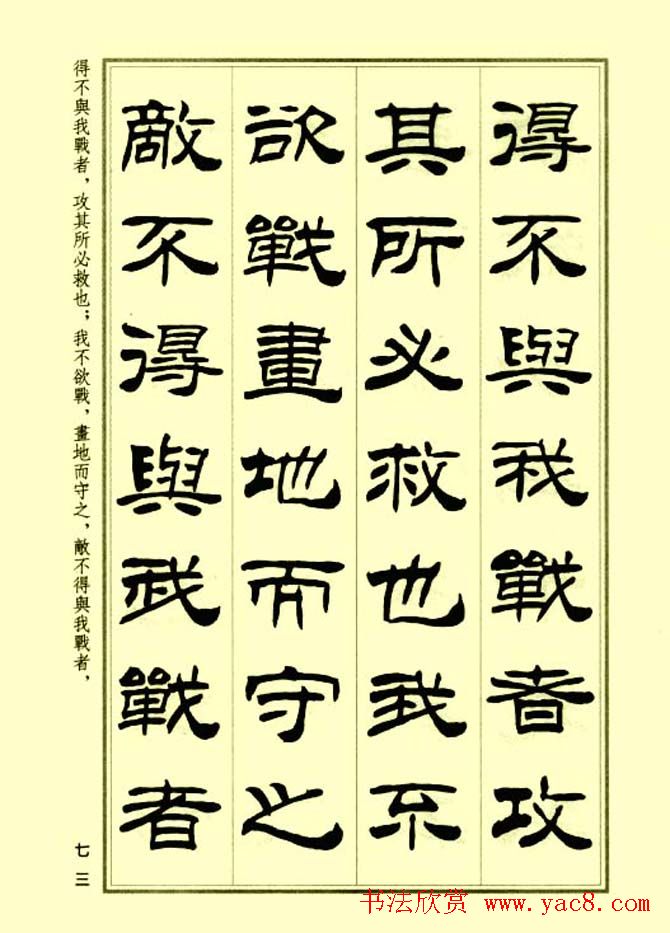 得不與我戰者攻
其所必救也我不
欲戰畫地而守之
敵不得與我戰者
得不與我戰者，攻其所必救也；我不欲戰，畫地而守之，敵不得與我戰者，
七三
书法欣赏 www.yac8.com